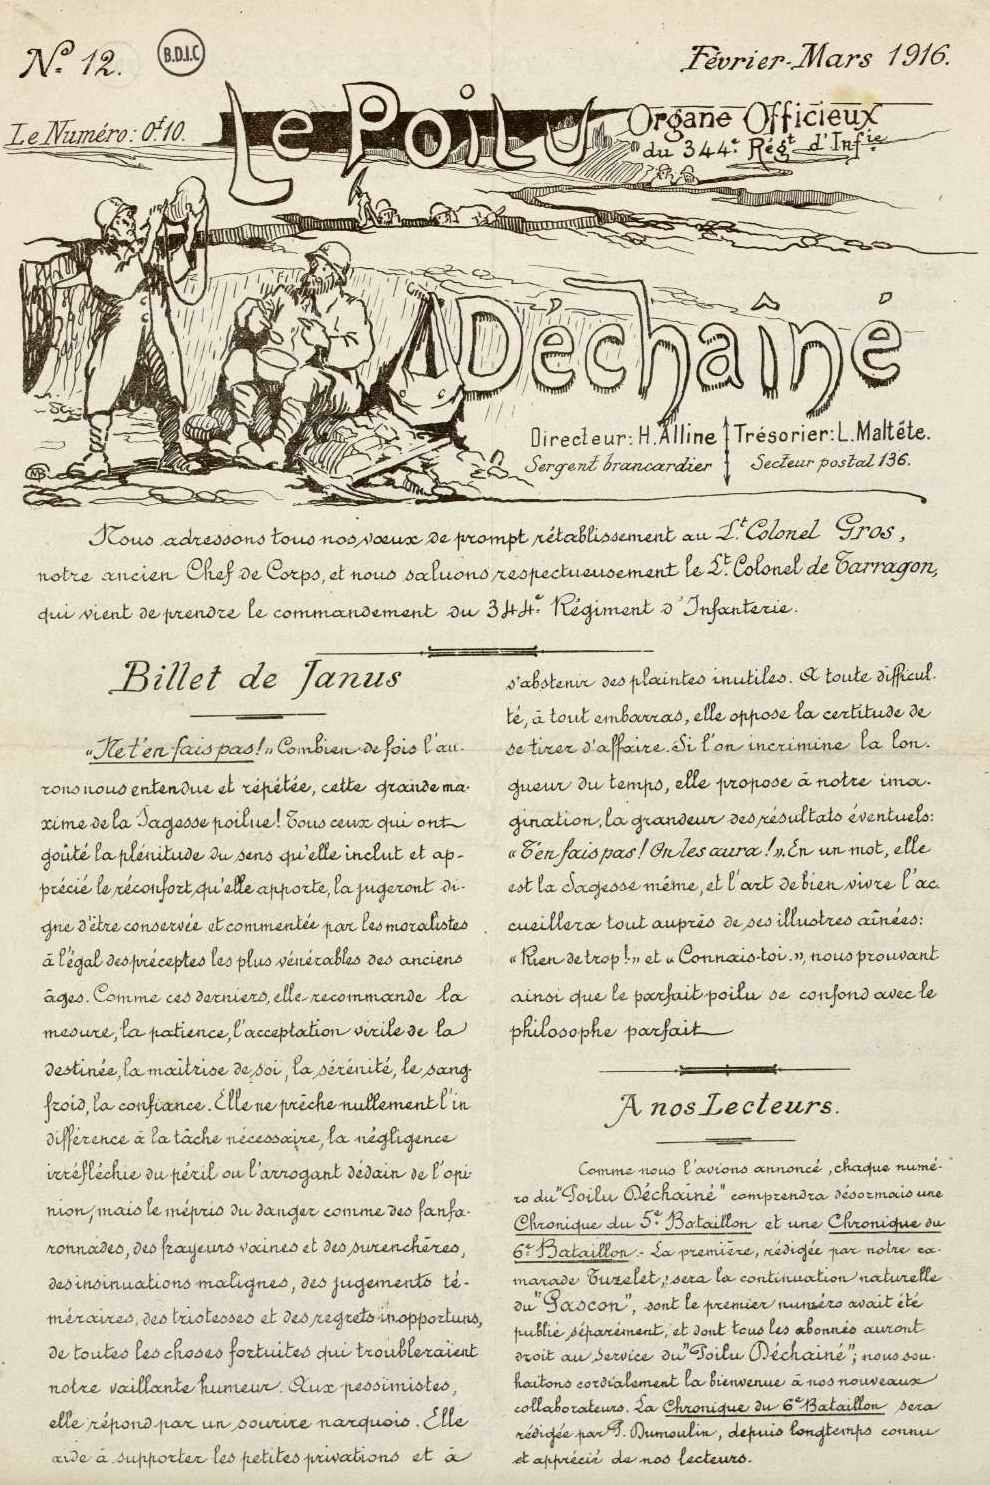 No. 12.
B.D.I.C
Février-Mars 1916.
Le Numéro: 0f.10.
Le Poilu
Organe Officieux
du 344e Régt d'Infie
Déchaîné
Directeur: H. Alline
Sergent brancardier
Trésorier: L. Maltête.
Secteur postal 136.
Nous adressons tous nos vœux de prompt rétablissement au Lt Colonel Gros,
notre ancien Chef de Corps, et nous saluons respectueusement le Lt Colonel de Tarragon,
qui vient de prendre le commandement du 344e Régiment d'Infanterie.
Billet de Janus
« Ne t'en fais pas! » Combien de fois l'au-
rons nous entendue et répétée, cette grande ma-
xime de la Sagesse poilue! Tous ceux qui ont
goûté la plénitude du sens qu'elle inclut et ap-
précié le réconfort qu'elle apporte, la jugeront di-
gne d'être conservée et commentée par les moralistes
à l'égal des préceptes les plus vénérables des anciens
âges. Comme ces derniers, elle recommande la
mesure, la patience, l'acceptation virile de la
destinée, la maîtrise de soi, la sérénité, le sang
froid, la confiance. Elle ne prêche nullement l'in
différence à la tâche nécessaire, la négligence
irréfléchie du péril ou l'arrogant dédain de l'opi
nion, mais le mépris du danger comme des fanfa-
ronnades, des frayeurs vaines et des surenchères,
des insinuations malignes, des jugements té-
méraires, des tristesses et des regrets inopportuns,
de toutes les choses fortuites qui troubleraient
notre vaillante humeur. Aux pessimistes,
elle répond par un sourire narquois. Elle
aide à supporter les petites privations et à
s'abstenir des plaintes inutiles. A toute difficul-
té, à tout embarras, elle oppose la certitude de
se tirer d'affaire. Si l'on incrimine la lon-
gueur du temps, elle propose à notre ima-
gination, la grandeur des résultats éventuels:
« T'en fais pas! On les aura! ». En un mot, elle
est la Sagesse même, et l'art de bien vivre l'ac
cueillera tout auprès de ses illustres aînées:
« Rien de trop! » et « Connais-toi. », nous prouvant
ainsi que le parfait poilu se confond avec le
philosophe parfait
A nos Lecteurs.
Comme nous l'avions annoncé, chaque numé-
ro du "Poilu Déchaîné" comprendra désormais une
Chronique du 5e Bataillon et une Chronique du
6e Bataillon. - La première, rédigée par notre ca-
marade Tuzelet, sera la continuation naturelle
du "Gascon", dont le premier numéro avait été
publié séparément, et dont tous les abonnés auront
droit au service du "Poilu Déchaîné"; nous sou-
haitons cordialement la bienvenue à nos nouveaux
collaborateurs. La Chronique du 6e Bataillon sera
rédigée par P. Dumoulin, depuis longtemps connu
et apprécié de nos lecteurs.